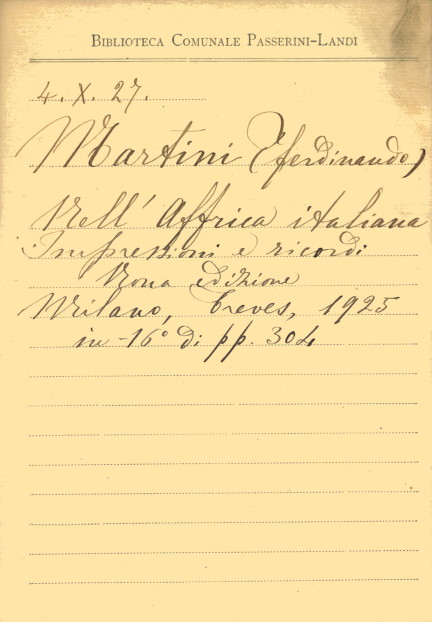 BIBLIOTECA COMUNALE PASSERINI-LANDI
4. X. 27.
Martini (Ferdinando)
Nell' Affrica italiana
Impressioni e ricordi
Nona edizione
Milano, Treves, 1925
in -16° di pp. 304